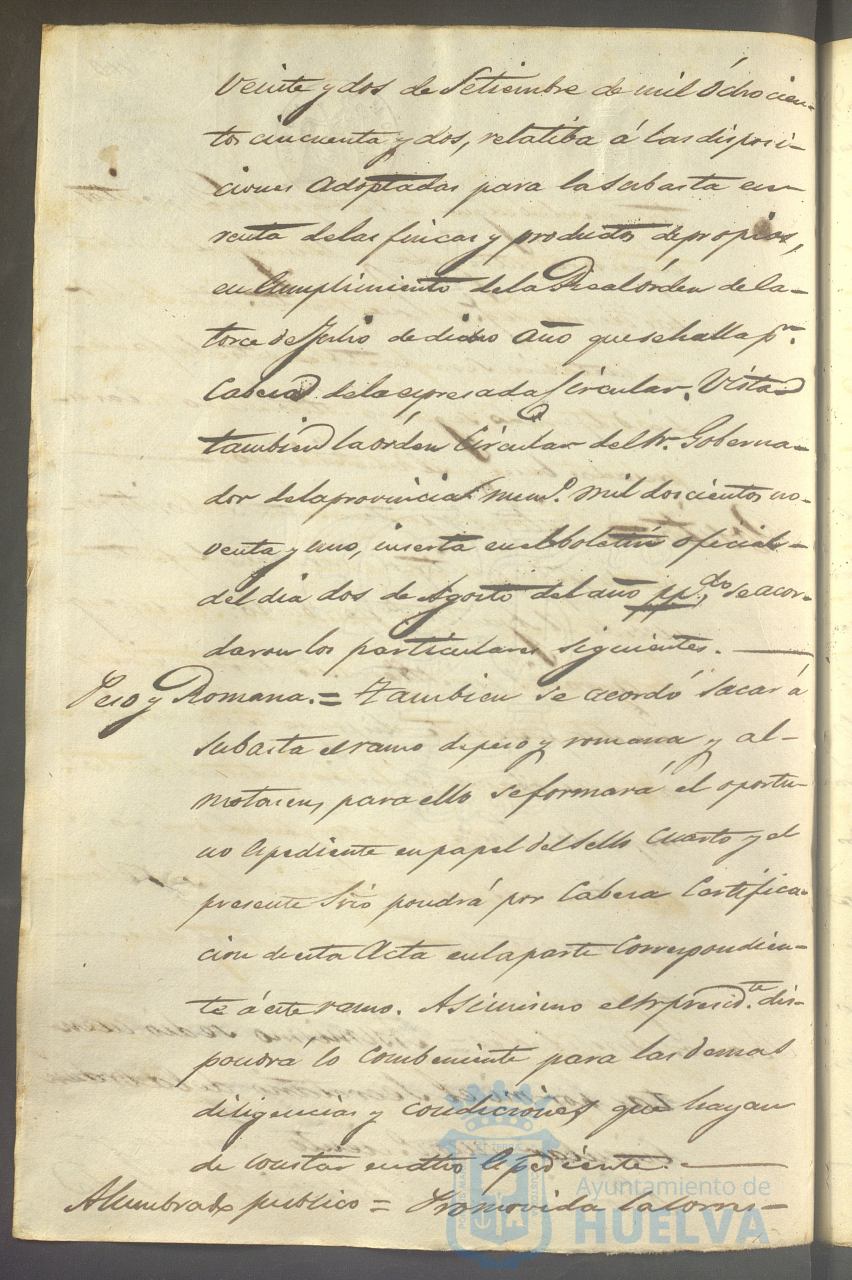 Veinte y dos de Setiembre de mil ócho cien-
tos cincuenta y dos, relatiba á las disposi-
ciones adoptadas para la subasta en
renta de las fincas y productos de propios,
en Cumplimiento de la Real órden de Ca-
torce de Julio de dicho año que se halla pr.
Cabeza de la espresada Circular. Vista
tambien la órden Circular del Sr. Goberna-
dor de la provincia numo. mil doscientos no-
venta y uno, inserta en el boletin oficial
del dia dos de Agosto del año pp.do, se acor-
daron los particulares siguientes.
Peso y Romana. = Tambien se acordó sacar á
subasta el ramo de peso y romana y al-
motacen, para ello se formará el oportu-
no Espediente en papel del Sello Cuarto y el
presente Srio pondrá por Cabeza Certifica-
cion de esta Acta en la parte Correspondien-
te á este ramo. Asimismo el Sr presid.te dis-
pondrá lo Combeniente para las demas
diligencias y condiciones que hayan
de constar en dho Espediente.
Alumbrado publico = Promovida la corres-
Ayuntamiento de
HUELVA